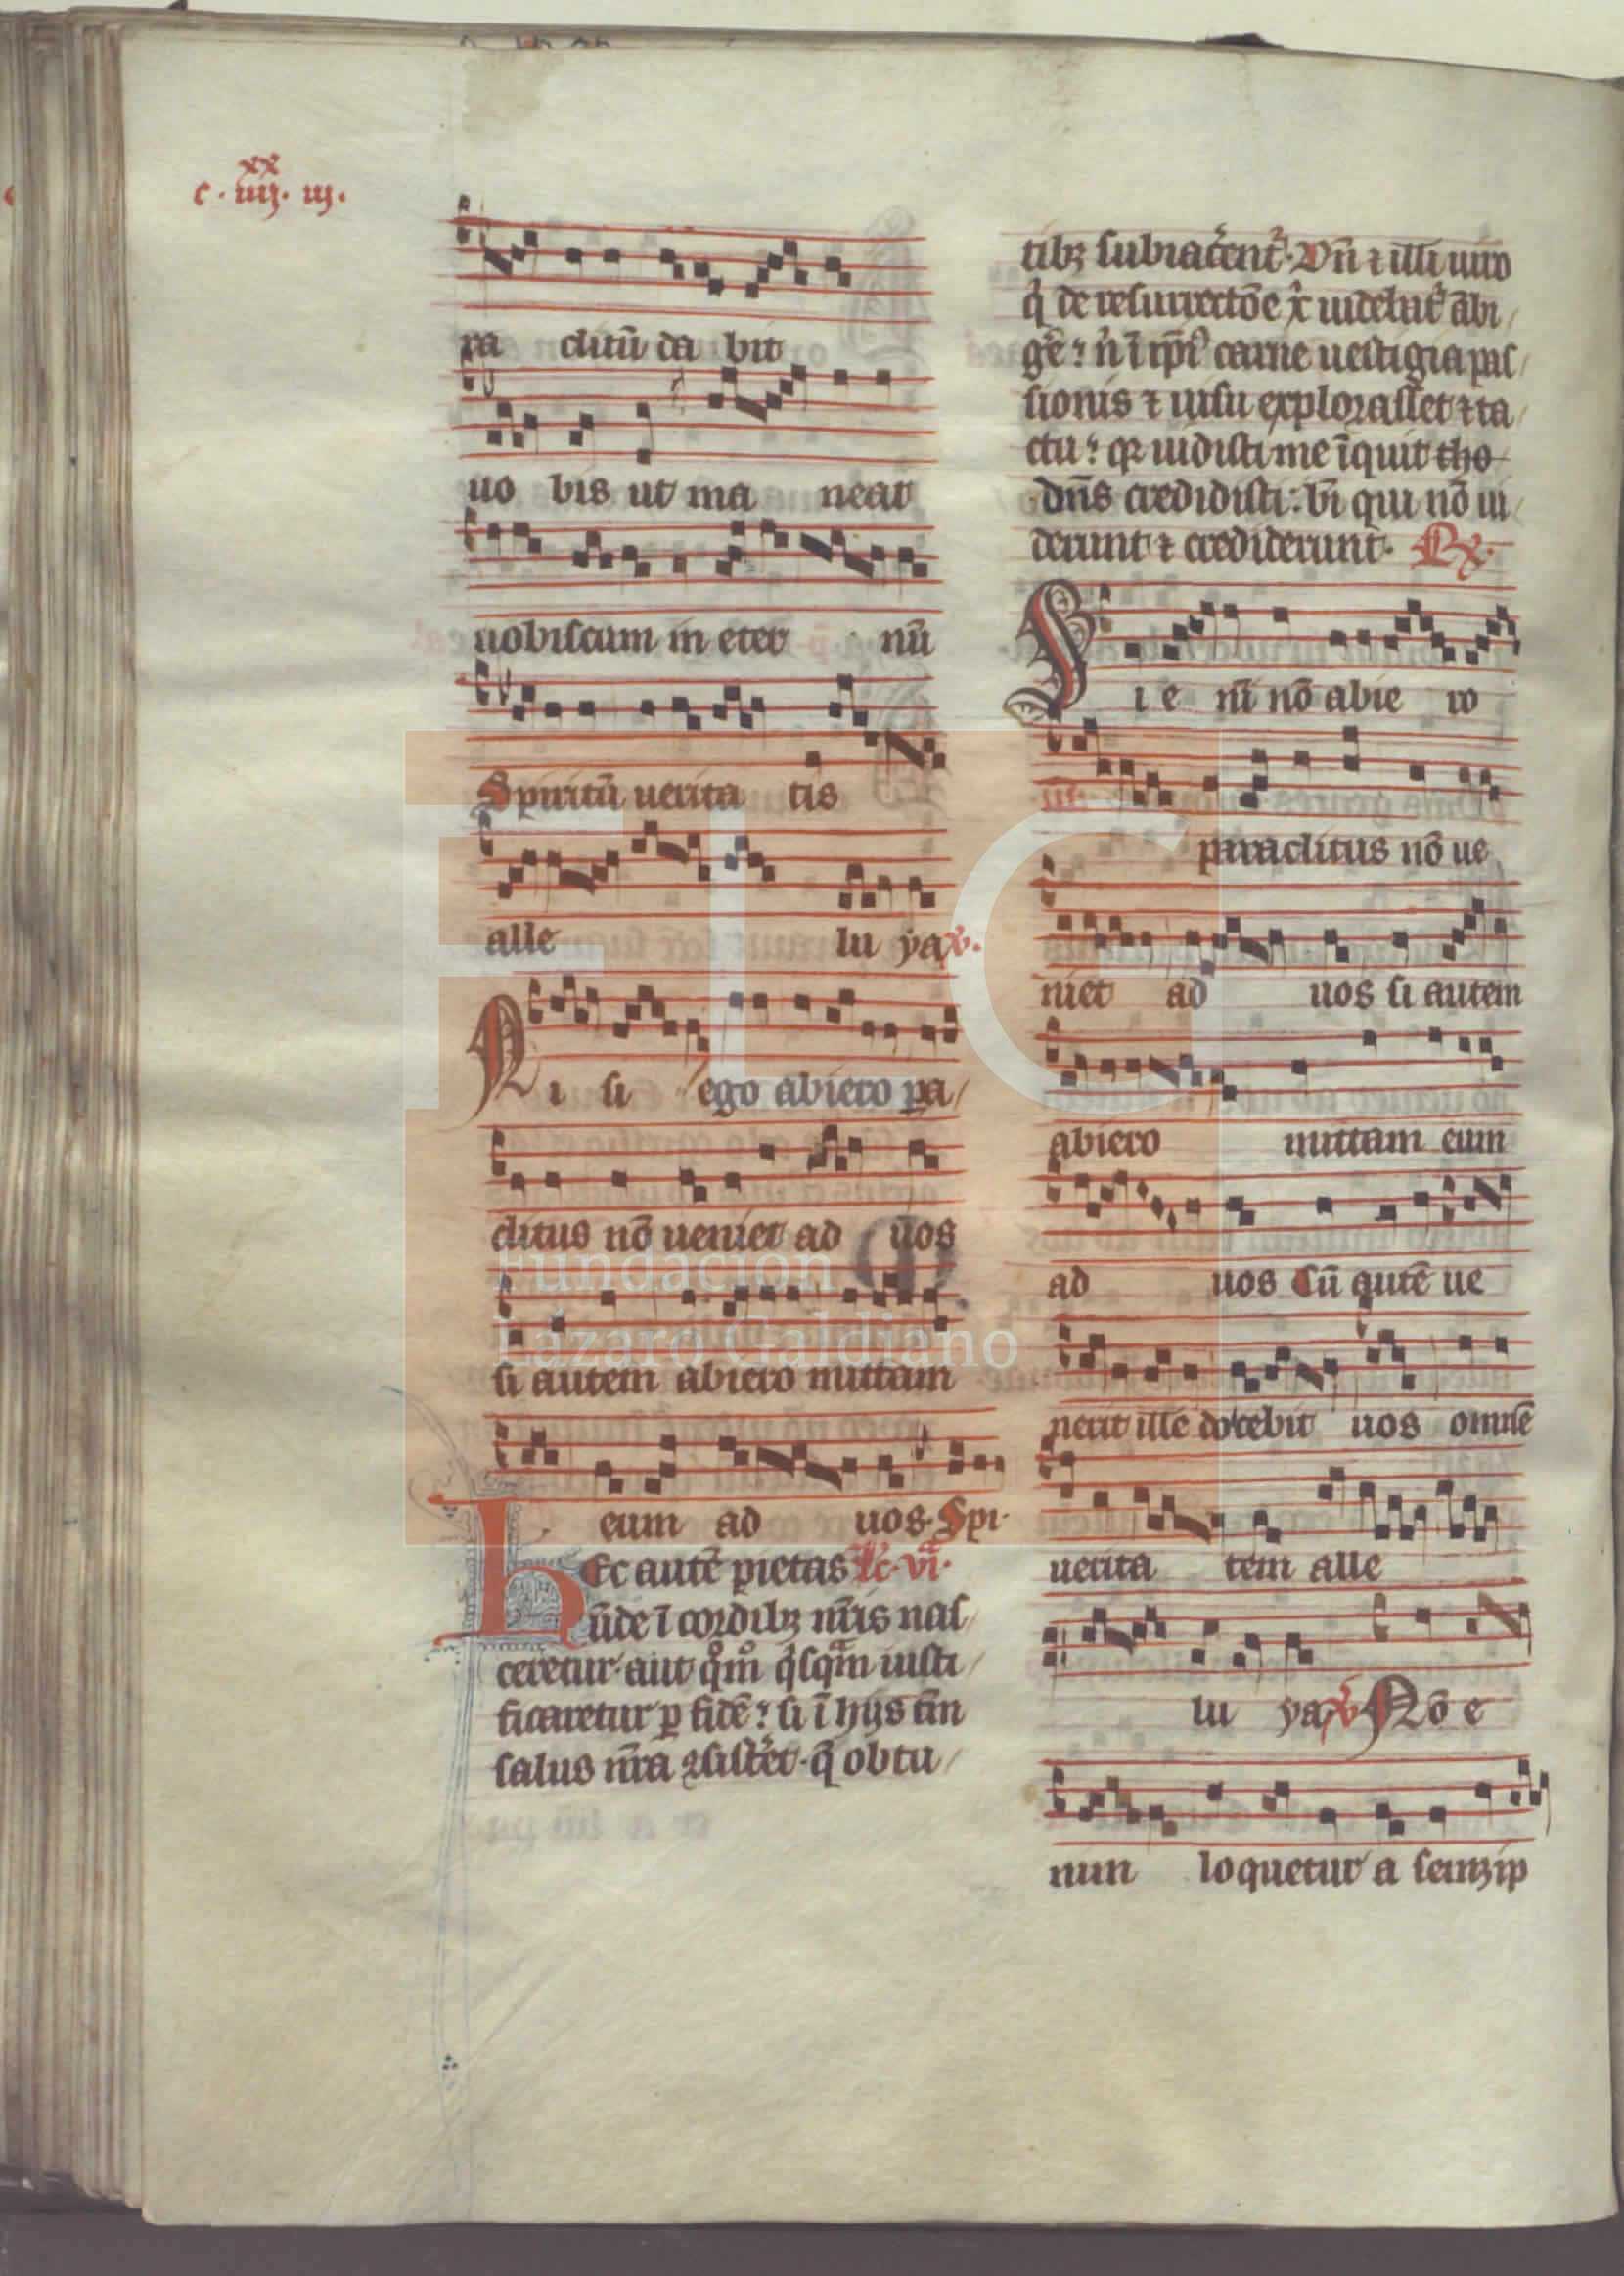 xx
c. iiij. iij.
ra clitū da bit
uo bis ut ma neat
uobiscum in eter nū
Spiritū uerita tis
alle lu ya v̄.
Ni si ego abiero pa/
clitus nō ueniet ad uos
si autem abiero mittam
eum ad uos. Spi.
Hec autē pietas lc̄. vī.
ūde ī cordibꝫ nr̄is nas/
ceretur. aut qͦmͦ qͥsqͣm iusti/
ficaretur ꝑ fidē? si ī hijs tm̄
salus nr̄a ꝯsistēt. q̄ obtu/
tibꝫ subiacēnt. Vn̄ ⁊ illi uiro
qͥ de resurrectōe xͥ uidebat̉ ābi/
gē? nͥ ī ip̄iͥ carne uestigia pas/
sionis ⁊ uisu explorasset ⁊ ta/
ctu? qꝛ uidisti me īquit tho
dn̄s credidisti: bī qui nō ui/
derunt ⁊ crediderunt. Rx.
Si e nī nō abie ro
paraclitus nō ue
niet ad uos si autem
abiero mittam eum
ad uos Cū autē ue
nerit ille docebit uos omnē
uerita tem alle
lu ya v̄ Nō e
nim loquetur a semꝫip
Fundación
Lázaro Galdiano
FLG